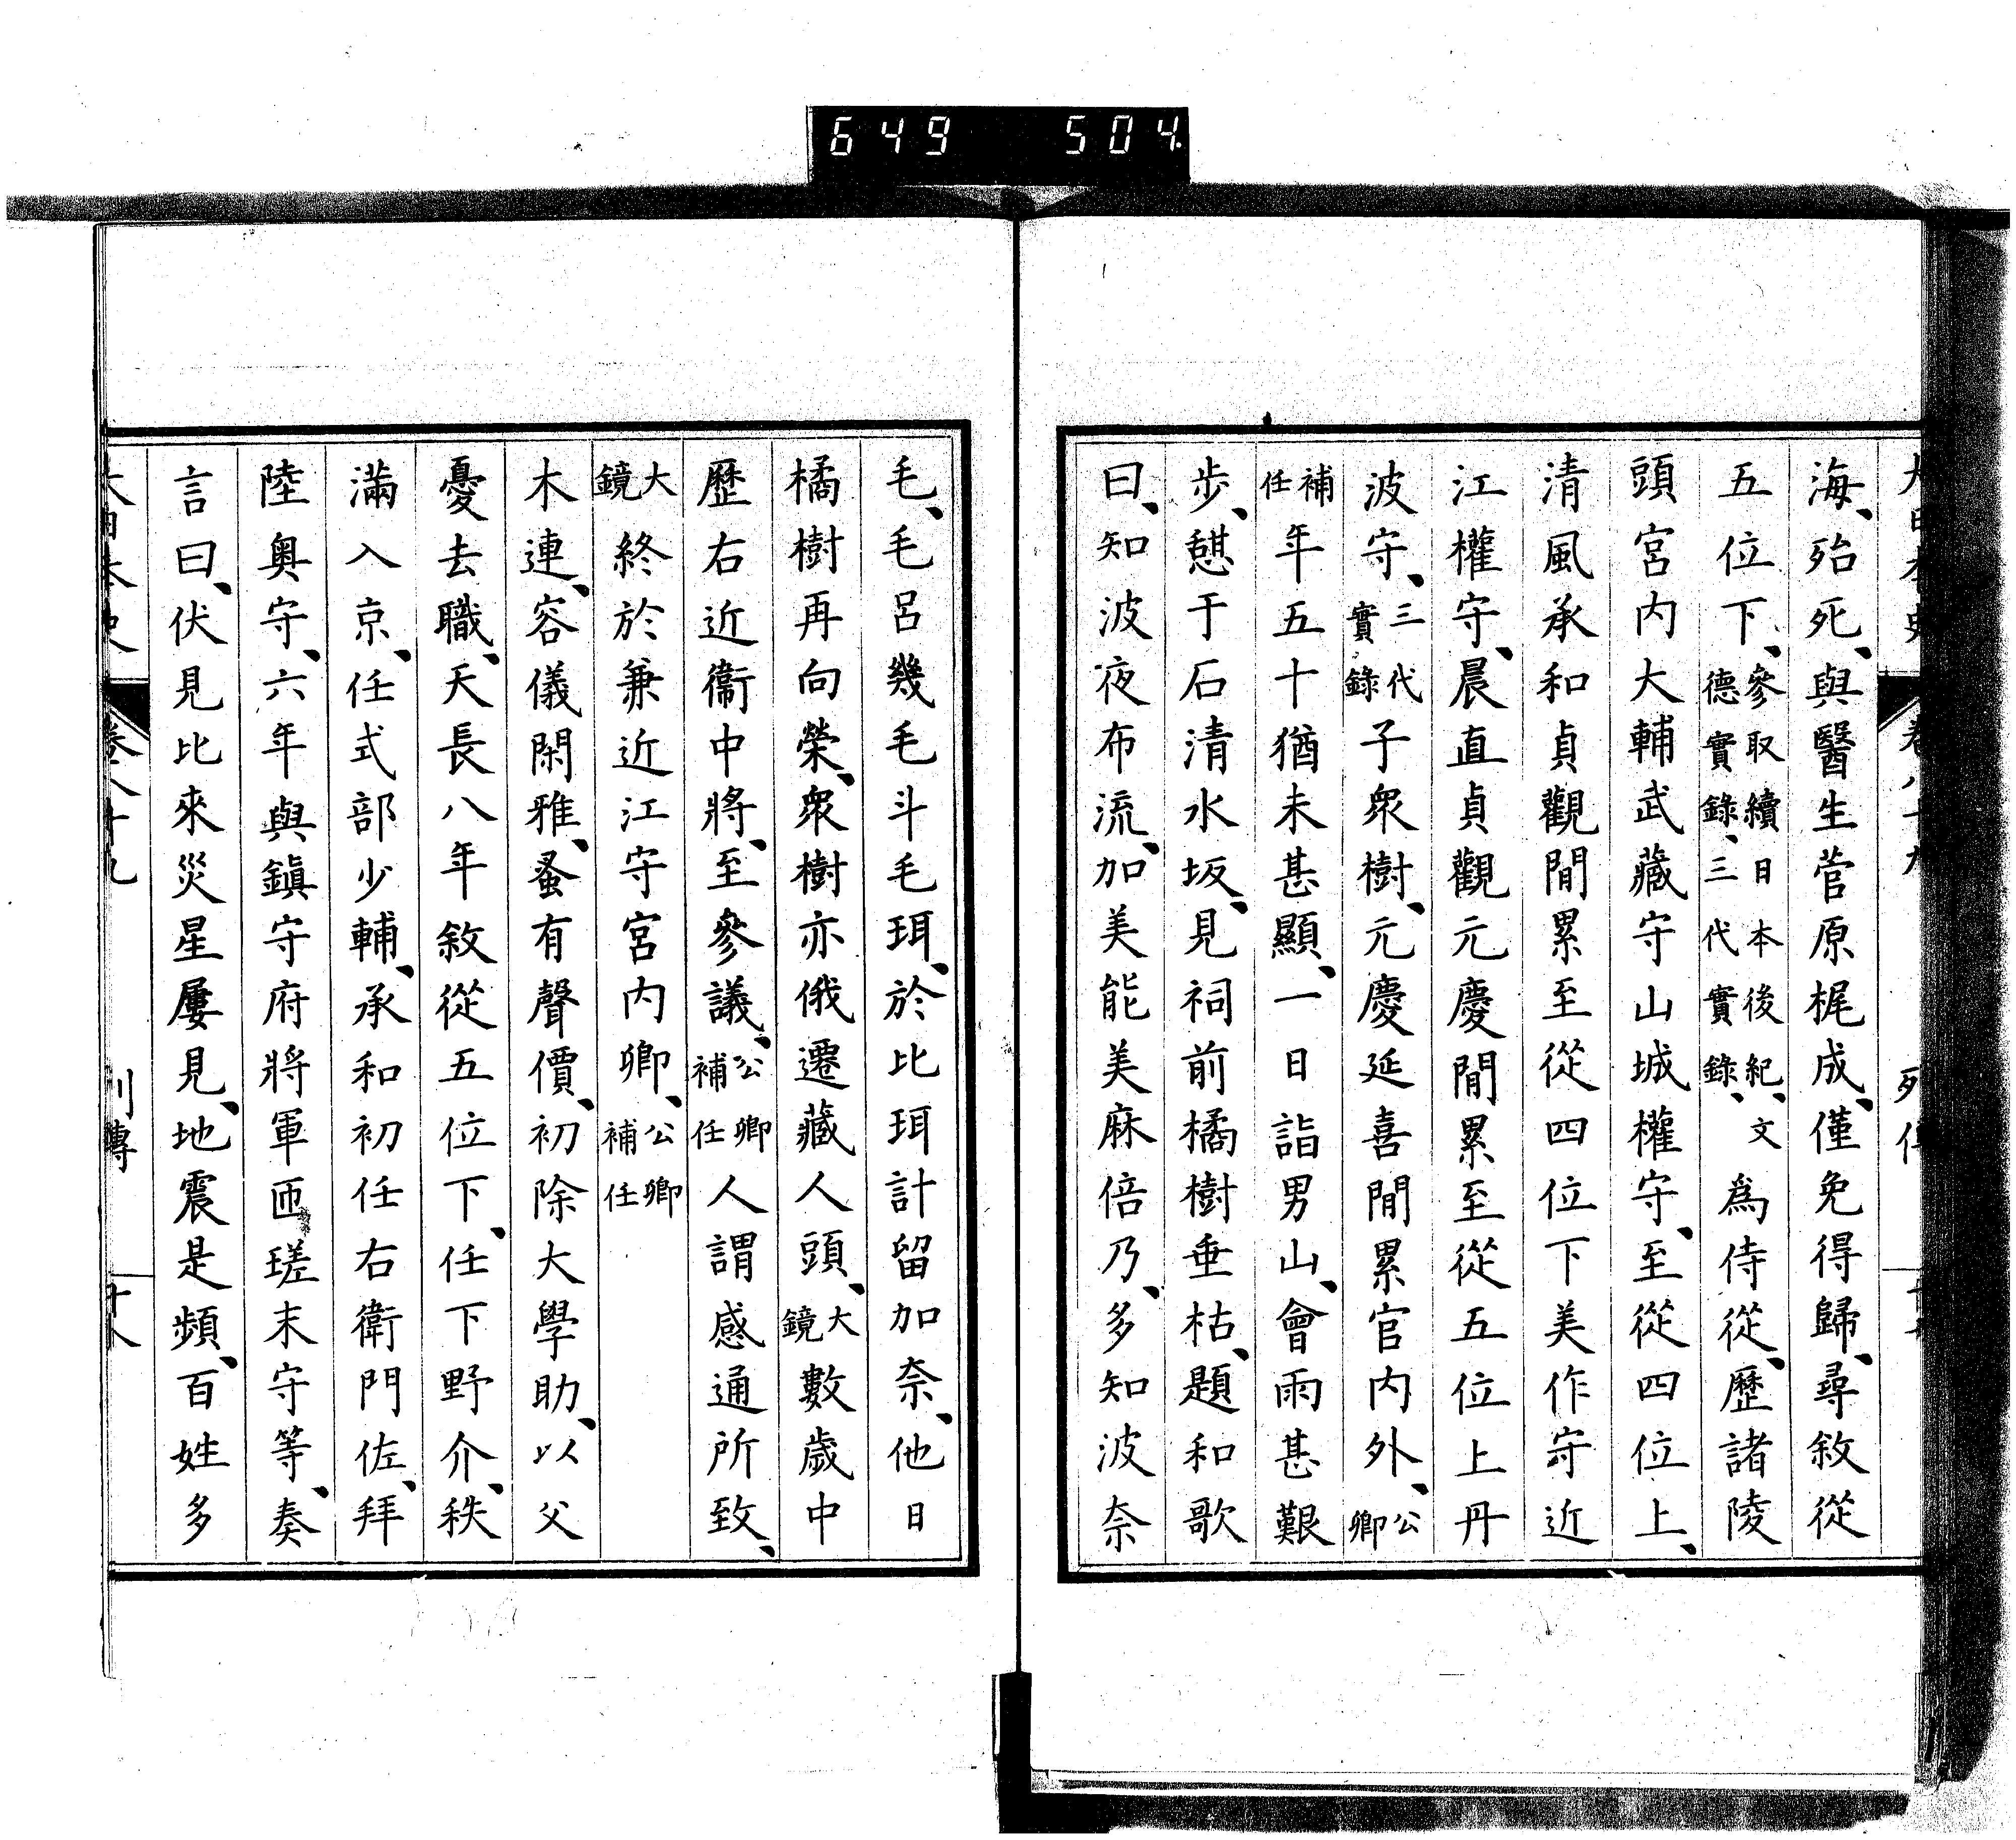 649 504
大日本史 卷八十九 列傳
海、殆死、與醫生菅原梶成、僅免得歸、尋敘從
五位下、參取續日本後紀、文德實錄、三代實錄、爲侍從、歷諸陵
頭宮内大輔武藏守山城權守、至從四位上、
清風承和貞觀閒累至從四位下美作守近
江權守、晨直貞觀元慶閒累至從五位上丹
波守、三代實錄子衆樹、元慶延喜閒累官内外、公卿
補任年五十猶未甚顯、一日詣男山、會雨甚艱
步、憩于石清水坂、見祠前橘樹垂枯、題和歌
曰、知波夜布流、加美能美麻倍乃、多知波奈
毛、毛呂幾毛斗毛珥、於比珥計留加奈、他日
橘樹再向榮、衆樹亦俄遷藏人頭、大鏡數歲中
歷右近衞中將、至參議、公卿補任人謂感通所致、
大鏡終於兼近江守宮内卿、公卿補任
木連、容儀閑雅、蚤有聲價、初除大學助、以父
憂去職、天長八年敘從五位下、任下野介、秩
滿入京、任式部少輔、承和初任右衞門佐、拜
陸奧守、六年與鎭守府將軍匝瑳末守等、奏
言曰、伏見比來災星屢見、地震是頻、百姓多
大日本史 卷八十九 列傳 十八